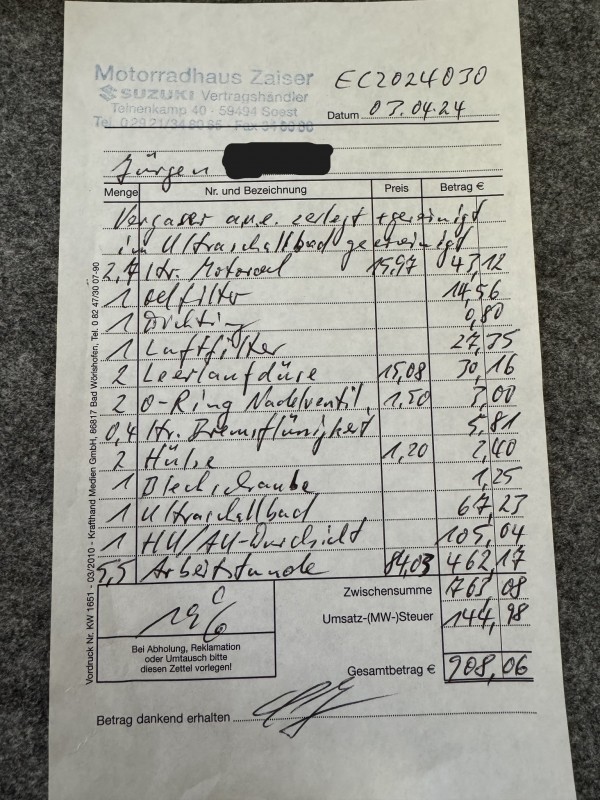 Motorradhaus Zaiser
SUZUKI Vertragshändler
Teinenkamp 40 - 59494 Soest
Tel. 0 29 21/34 80 85 · Fax 34 80 86
EC2024030
Datum 03.04.24
Jürgen
Menge Nr. und Bezeichnung Preis Betrag €
Vergaser zerlegt + gereinigt
im Ultraschallbad gereinigt
2,7 ltr. Motoroel 15,97 43,12
1 oelfilter 14,56
1 Dichtring 0,80
1 Luftfilter 27,35
2 Leerlaufdüse 15,08 30,16
2 O-Ring Nadelventil 1,50 3,00
0,4 ltr. Bremsflüssigkeit 5,81
2 Hülse 1,20 2,40
1 Blechschraube 1,25
1 Ultraschallbad 67,23
1 HU/AU-Durchsicht 105,04
5,5 Arbeitstunde 84,03 462,17
Zwischensumme 763,08
Umsatz-(MW-)Steuer 144,98
19%
Bei Abholung, Reklamation
oder Umtausch bitte
diesen Zettel vorlegen!
Gesamtbetrag € 908,06
Betrag dankend erhalten
Vordruck Nr. KW 1651 - 03/2010 - Krafthand Medien GmbH, 86817 Bad Wörishofen, Tel. 0 82 47/30 07-90